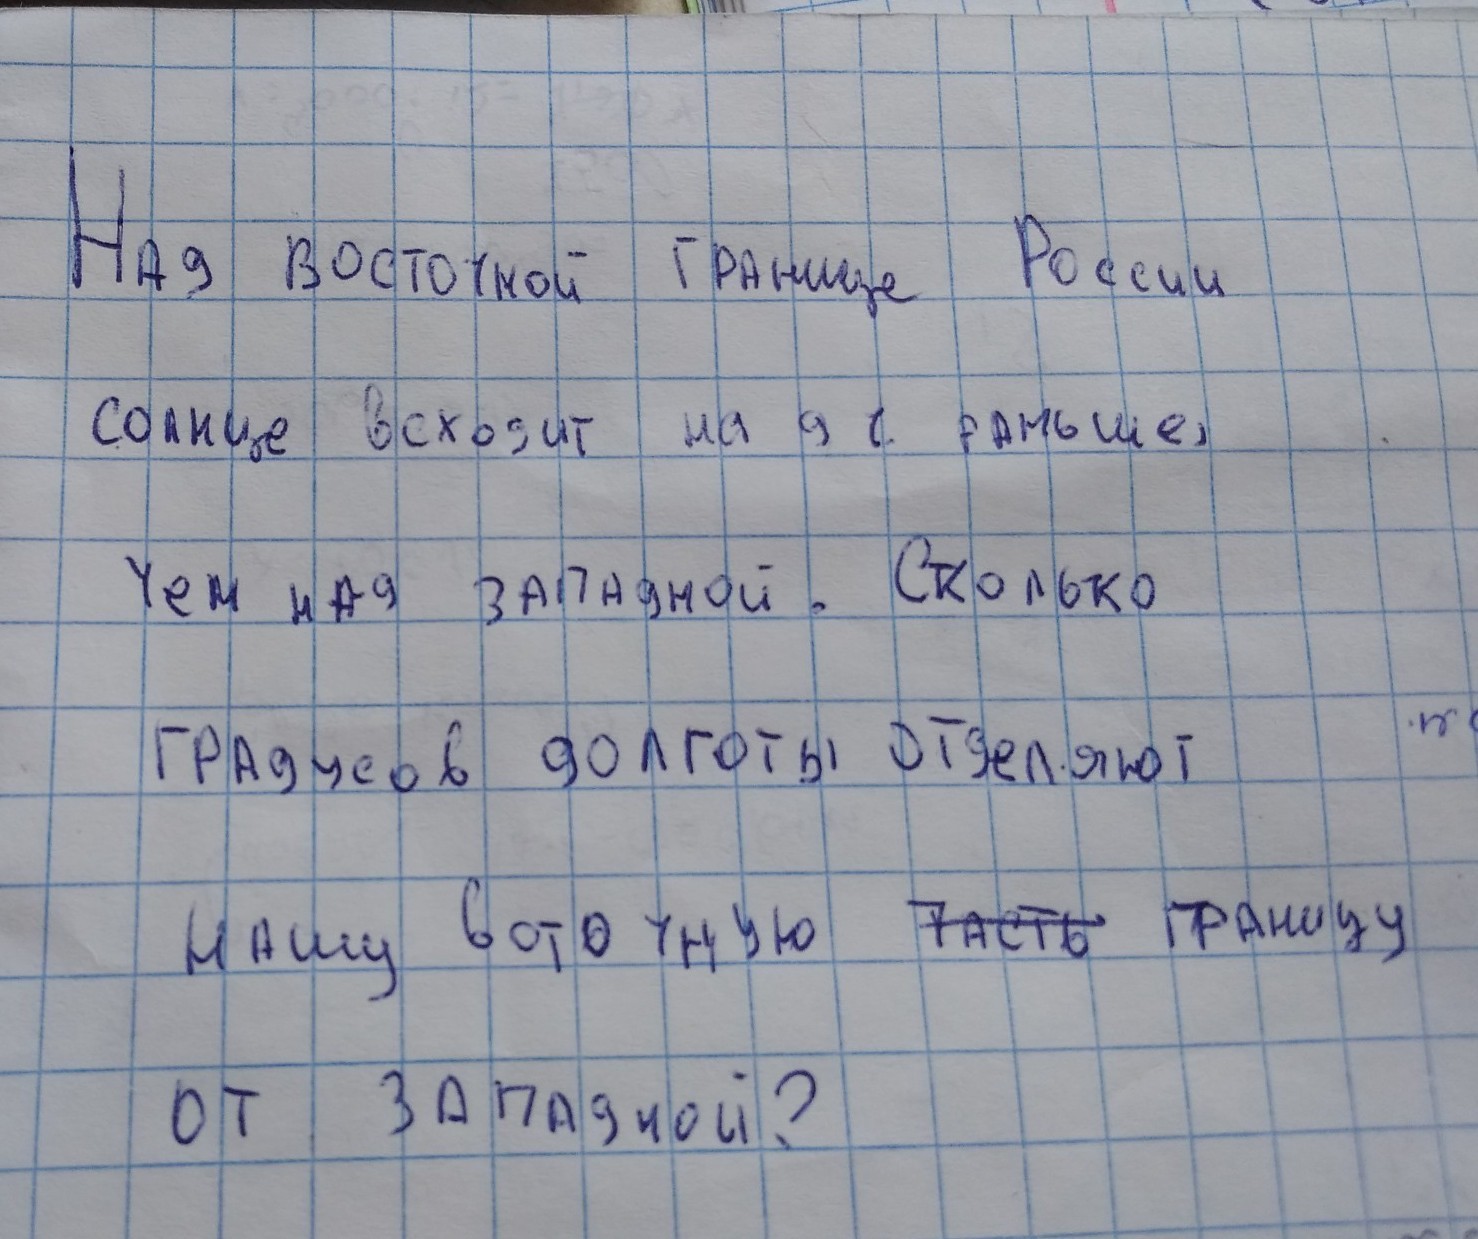 Над восточной границе России
солнце всходит на 9 ч. раньше,
Чем над западной. Сколько
градусов долготы отделяют
нашу воточную часть границу
от западной?